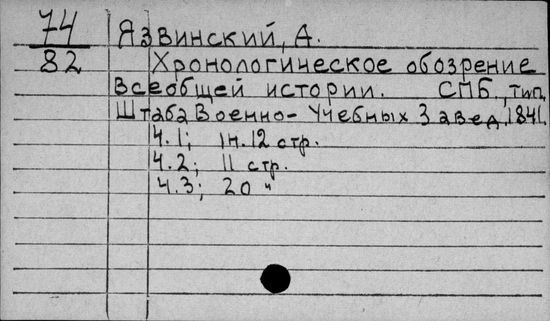 74 Язвинский, А.
82 Хронологическое обозрение
Всеобщей истории. СПБ, тип.
Штаба Военно-Учебных Завед, 1841.
Ч.1; 12 стр.
Ч.2; 11 стр.
Ч.3; 20 "